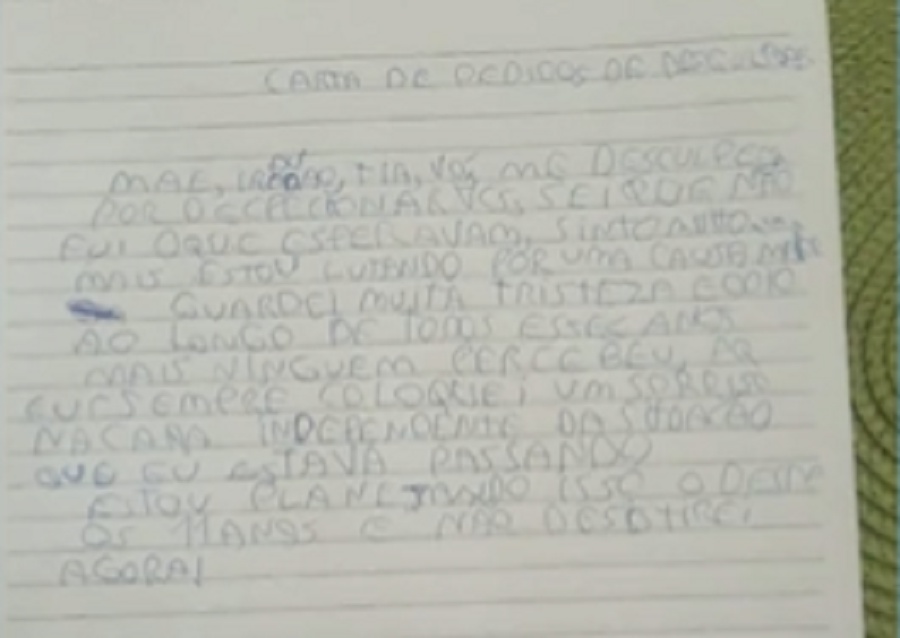 CARTA DE PEDIDOS DE DESCULPAS
MAE, IRMÃO, TIA, VÓ, ME DESCULPEM
POR DECEPCIONAR VCS, SEI QUE NÃO
FUI OQUE ESPERAVAM, SINTO MUITO
MAIS ESTOU LUTANDO POR UMA CAUSA
GUARDEI MUITA TRISTEZA E ODIO
AO LONGO DE TODOS ESSES ANOS
MAIS NINGUEM PERCEBEU,
SEMPRE COLOQUEI UM SORRISO
NA CARA INDEPENDENTE DA SITUAÇÃO
QUE EU ESTAVA PASSANDO
ESTOU PLANEJANDO ISSO DESDE
OS 11 ANOS E NÃO DESISTIREI
AGORA!